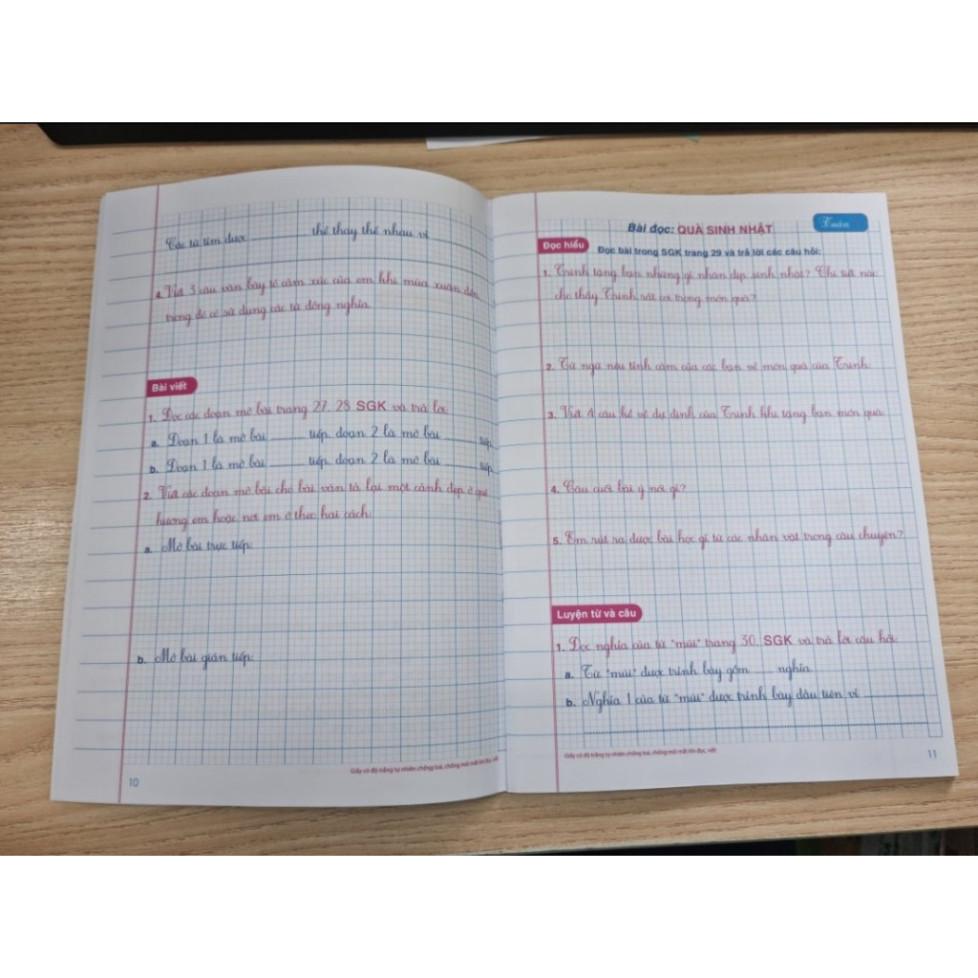 Các từ tìm được ______ thể thay thế nhau vì
4. Viết 3 câu văn bày tỏ cảm xúc của em khi mùa xuân đến,
trong đó có sử dụng các từ đồng nghĩa.
Bài viết
1. Đọc các đoạn mở bài trang 27, 28 SGK và trả lời:
a. Đoạn 1 là mở bài ______ tiếp, đoạn 2 là mở bài ______ tiếp.
b. Đoạn 1 là mở bài ______ tiếp, đoạn 2 là mở bài ______ tiếp.
2. Viết các đoạn mở bài cho bài văn tả lại một cảnh đẹp ở quê
hương em hoặc nơi em ở theo hai cách:
a. Mở bài trực tiếp:
b. Mở bài gián tiếp:
Giấy có độ trắng tự nhiên chống loá, chống mỏi mắt khi đọc, viết
10
Tuần
Bài đọc: QUÀ SINH NHẬT
Đọc hiểu Đọc bài trong SGK trang 29 và trả lời các câu hỏi:
1. Trinh tặng bạn những gì nhân dịp sinh nhật? Chi tiết nào
cho thấy Trinh rất coi trọng món quà?
2. Từ ngữ nêu tình cảm của các bạn về món quà của Trinh:
3. Viết 4 câu kể về dự định của Trinh khi tặng bạn món quà.
4. Câu cuối bài ý nói gì?
5. Em rút ra được bài học gì từ các nhân vật trong câu chuyện?
Luyện từ và câu
1. Đọc nghĩa của từ "mũi" trang 30, SGK và trả lời câu hỏi:
a. Từ "mũi" được trình bày gồm ____ nghĩa.
b. Nghĩa 1 của từ "mũi" được trình bày đầu tiên vì ______
Giấy có độ trắng tự nhiên chống loá, chống mỏi mắt khi đọc, viết
11